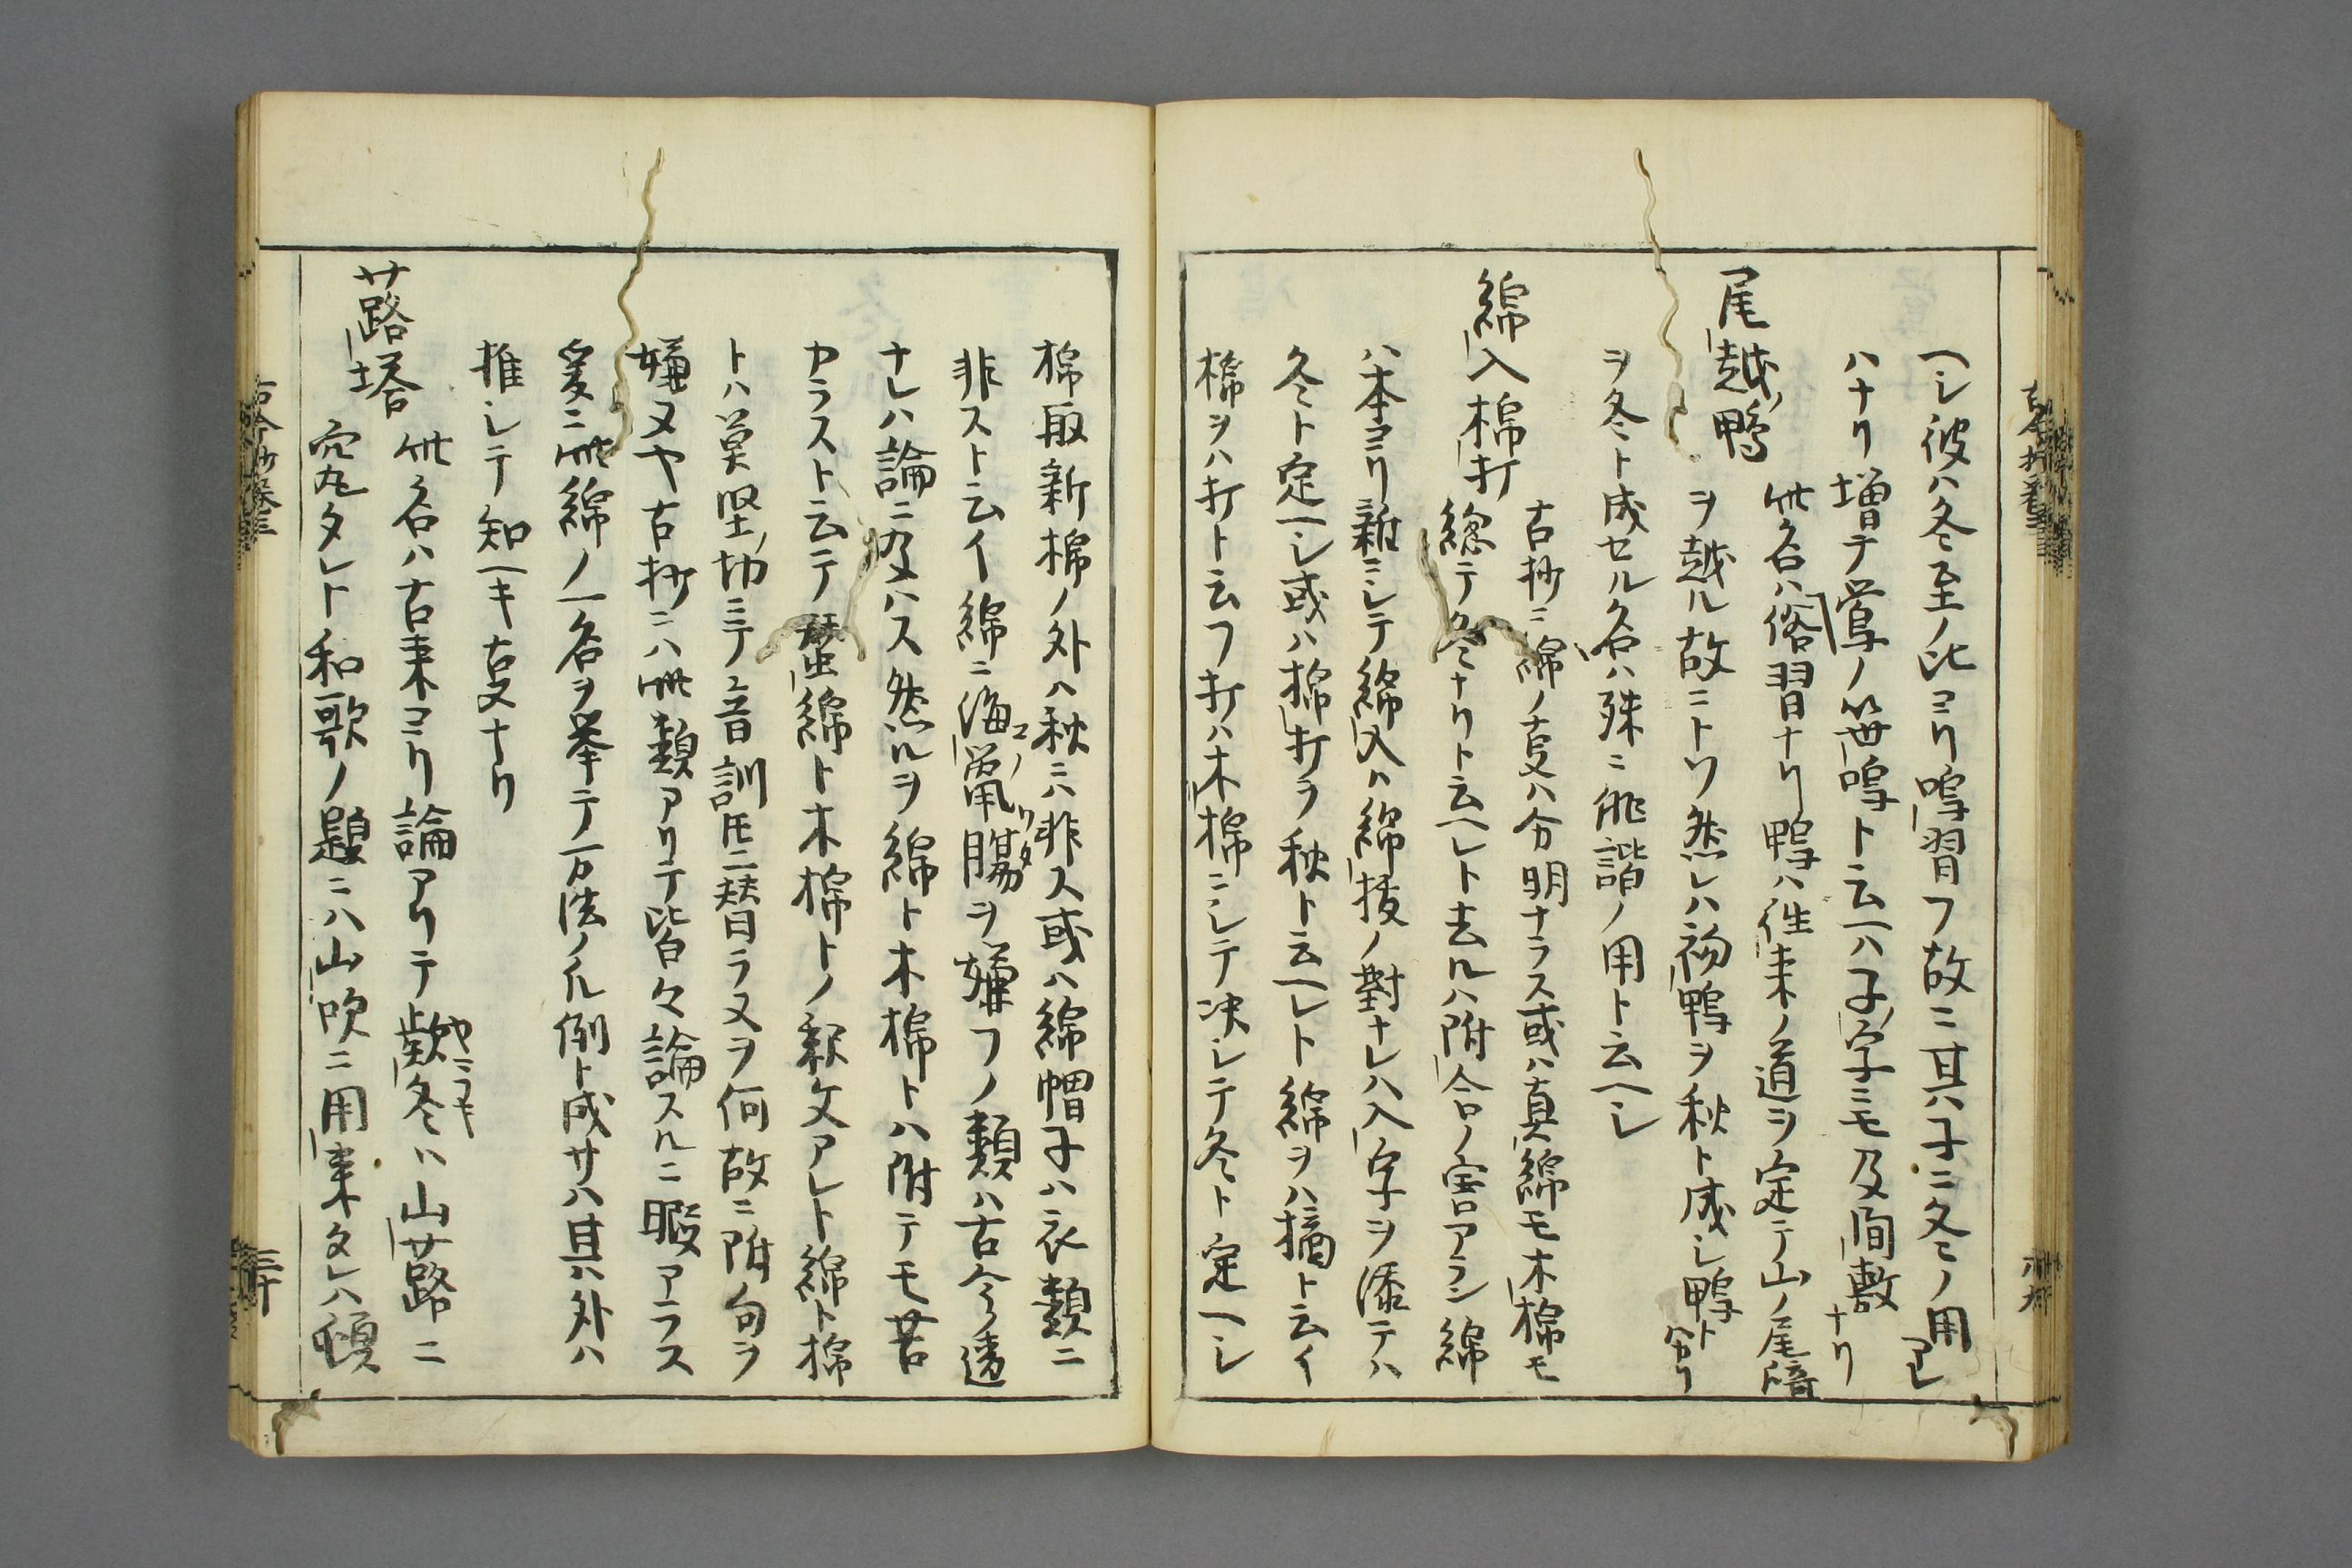 ヘシ彼ハ冬至ノ比ヨリ鳴習フ故ニ其ハ子ニ冬ノ用アレ
ハナリ増テ鶯ノ笹鳴ト云ヘハ子ノ字ミモ及間敷ナリ
尾越ノ鴨
此名ハ俗習ナリ鴨ハ往来ノ道ヲ定テ山ノ尾陰
ヲ越ル故ニトソ然レハ初鴨ヲ秋ト成シ鴨ト分リ
ヲ冬ト成セル名ハ殊ニ俳諧ノ用ト云ヘシ
綿入 棉打
古抄ニ綿ノ叓ハ分明ナラス或ハ真綿モ木棉モ
総テ冬ナリト云ヘレト去ルハ附合ノ害アラン綿
ハ本ヨリ雑ニシテ綿入ハ綿抜ノ對ナレハ入ノ字ヲ添テハ
冬ト定ヘシ或ハ棉打ヲ秋ト云ヘレト綿ヲハ摘ト云イ
棉ヲハ打ト云フ打ハ木棉ニシテ决シテ冬ト定ヘシ
棉取新棉ノ外ハ秋ニハ非ス或ハ綿帽子ハ衣類ニ
非スト云イ綿ニ海鼠膓ヲ嫌フノ類ハ古今ノ違
ナレハ論ニ及ハス然ルヲ綿ト木棉トハ附テモ苦
カラスト云テ蚕綿ト木棉トノ釈文アレト綿ト棉
トハ莫堅ノ切ミテ音訓圧ニ替ラヌヲ何故ニ附句ヲ
嫌ヌヤ古抄ニハ此類アリテ皆々論スルニ暇アラス
爰ニ此綿ノ一名ヲ挙テ万法ノ凡例ト成サハ其ハ外ハ
推シテ知ヘキ叓ナリ
蕗塔
此名ハ古来ヨリ論アリテ歟冬ハ山蕗ニ
究タレト和歌ノ題ニハ山吹ニ用来タレハ頓
古今抄巻三
三十